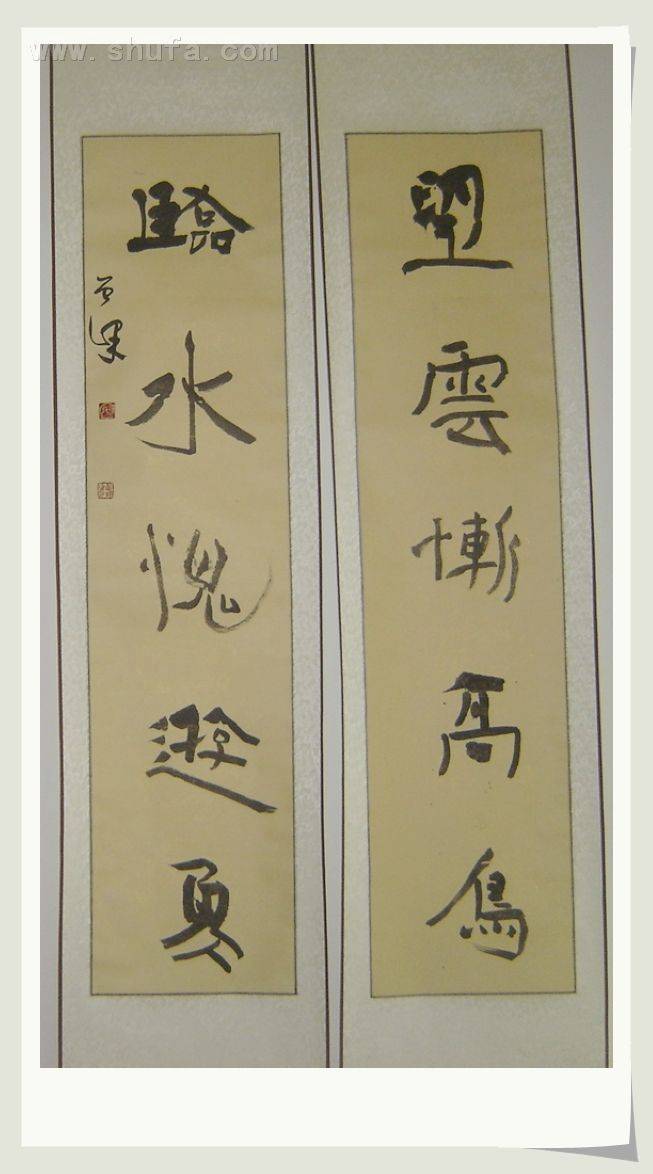 www.shufa.com
望雲慚高鳥
臨水愧遊魚